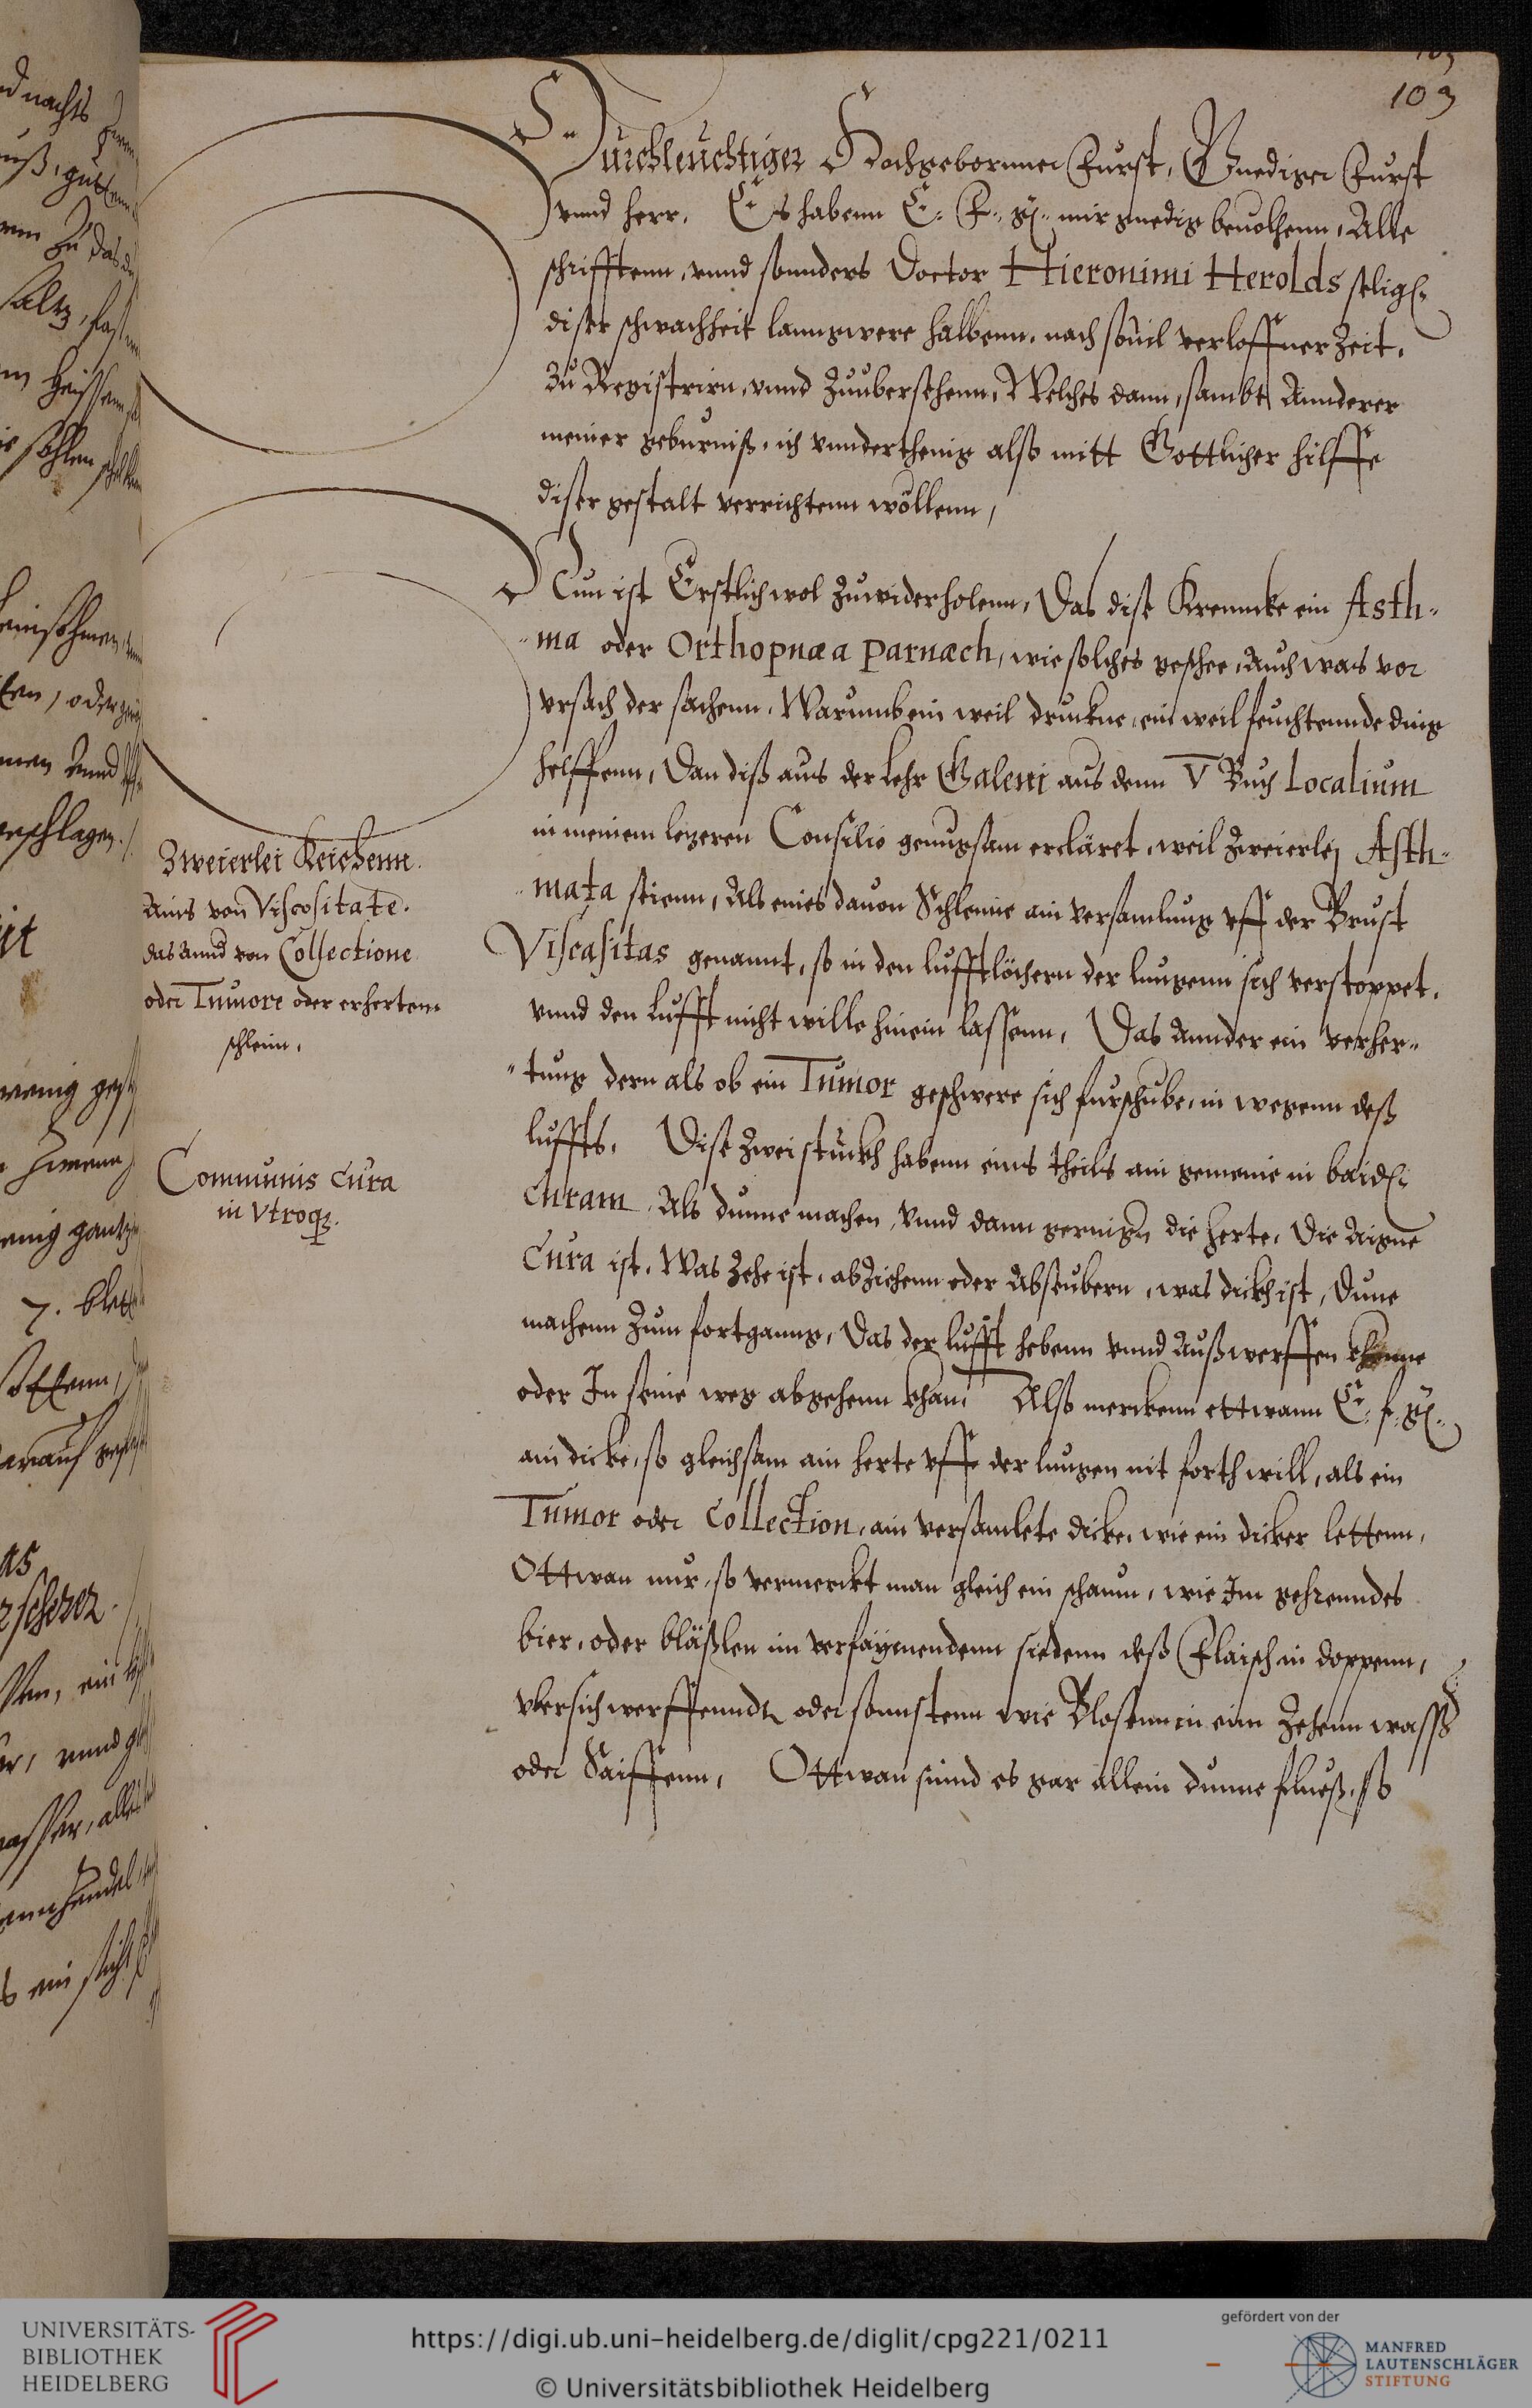 103
103
Durchleuchtiger Hochgebornner Furst, Gnediger Furst
vnnd herr. Es habenn E. F. g. mir gnedig beuolhenn, Alle
schrifftenn, vnnd sonnders Doctor Hieronimi Herolds selig
diser schwachheit lanngwere halbenn, nach souil verloffner Zeit,
Zu Registrirn, vnnd Zuubersehenn, Welches dann, sambt Annderer
meiner geburniß, ich vnnderthenig also mitt Gottlicher hilffe
diser gestalt verrichtenn wöllenn,
Nun ist Erstlich wol Zuwiderholenn, Das dise Krenncke ein Asth-
ma oder Orthopnæa parnæch, wie solches geschee, Auch was vor
vrsach der sachenn, Warumb ein weil druckne, ein weil feuchtennde ding
helffenn, Dan diß aus der Lehr Galeni aus dem V Buch Localium
in meinem lezeren Consilio genugsam ercläret, weil Zweierlej Asth-
mata seienn, Als eines dauon Schleime ain versamlung vff der Brust
Viscasitas genannt, so in den lufftlöchern der lungenn sich verstoppet,
vnnd den Lufft nicht wille hinein lassenn, Das Annder ein verher-
tung dern als ob ein Tumor geschwere sich furschube, in wegenn deß
luffts. Dise Zwei stuckh habenn eins theils ain gemeine in baid
curam, Als dunne machen, vnnd dann die herte, Die Aigne
Cura ist, Was Zehe ist, abZiehenn oder Abseubern, was dickh ist, Dune
machenn Zum fortganng, Das der lufft hebenn vnnd Außwerffen khonne
oder In seine weg abgehenn khan, Also merckenn ettwann E. f. g.
ain dicke, so gleichsam ain herte vff der lungen nit forth will, als ein
Tumor oder Collection, ain versamlete dicke, wie ein dicker lettenn,
Ottwan nur, so vermerckt man gleich ein schaum, wie Im gehrenndes
bier, oder bläßlen im verfaymendenn siedenn deß Flaisch in doppenn,
vbersich werffenndt, oder sonnstenn wie Blosenn in eim Zehenn wasser
oder Saiffenn, Ottwan sinnd es gar allein dunne flueß, so
Zweierlei Keichenn.
Ains von Viscositate.
das annd von Collectione
oder Tumore oder erhertem
schleim.
Communis cura
in Vtroq.
UNIVERSITÄTS-
BIBLIOTHEK
HEIDELBERG
https://digi.ub.uni-heidelberg.de/diglit/cpg221/0211
© Universitätsbibliothek Heidelberg
gefördert von der
MANFRED
LAUTENSCHLÄGER
STIFTUNG